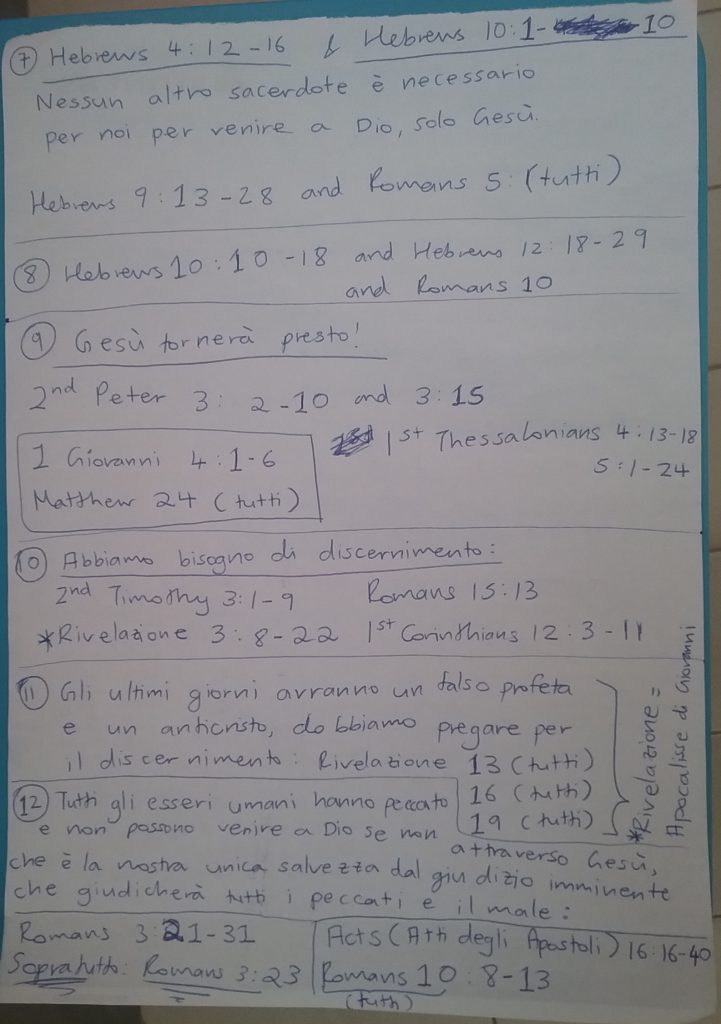 7 Hebrews 4:12-16 & Hebrews 10:1-10
Nessun altro sacerdote è necessario
per noi per venire a Dio, solo Gesù.
Hebrews 9:13-28 and Romans 5: (tutti)
8 Hebrews 10:10-18 and Hebrews 12:18-29
and Romans 10
9 Gesù tornerà presto!
2nd Peter 3: 2-10 and 3:15
1st Thessalonians 4:13-18
5:1-24
1 Giovanni 4:1-6
Matthew 24 (tutti)
10 Abbiamo bisogno di discernimento:
2nd Timothy 3:1-9 Romans 15:13
*Rivelazione 3:8-22 1st Corinthians 12:3-11
11 Gli ultimi giorni avranno un falso profeta
e un anticristo, dobbiamo pregare per
il discernimento: Rivelazione 13 (tutti)
16 (tutti)
19 (tutti)
*Rivelazione =
Apocalisse di Giovanni
12 Tutti gli esseri umani hanno peccato
e non possono venire a Dio se non
attraverso Gesù,
che è la nostra unica salvezza dal giudizio imminente
che giudicherà tutti i peccati e il male:
Romans 3:21-31
Sopratutto: Romans 3:23
Acts (Atti degli Apostoli) 16:16-40
Romans 10:8-13
(tutti)